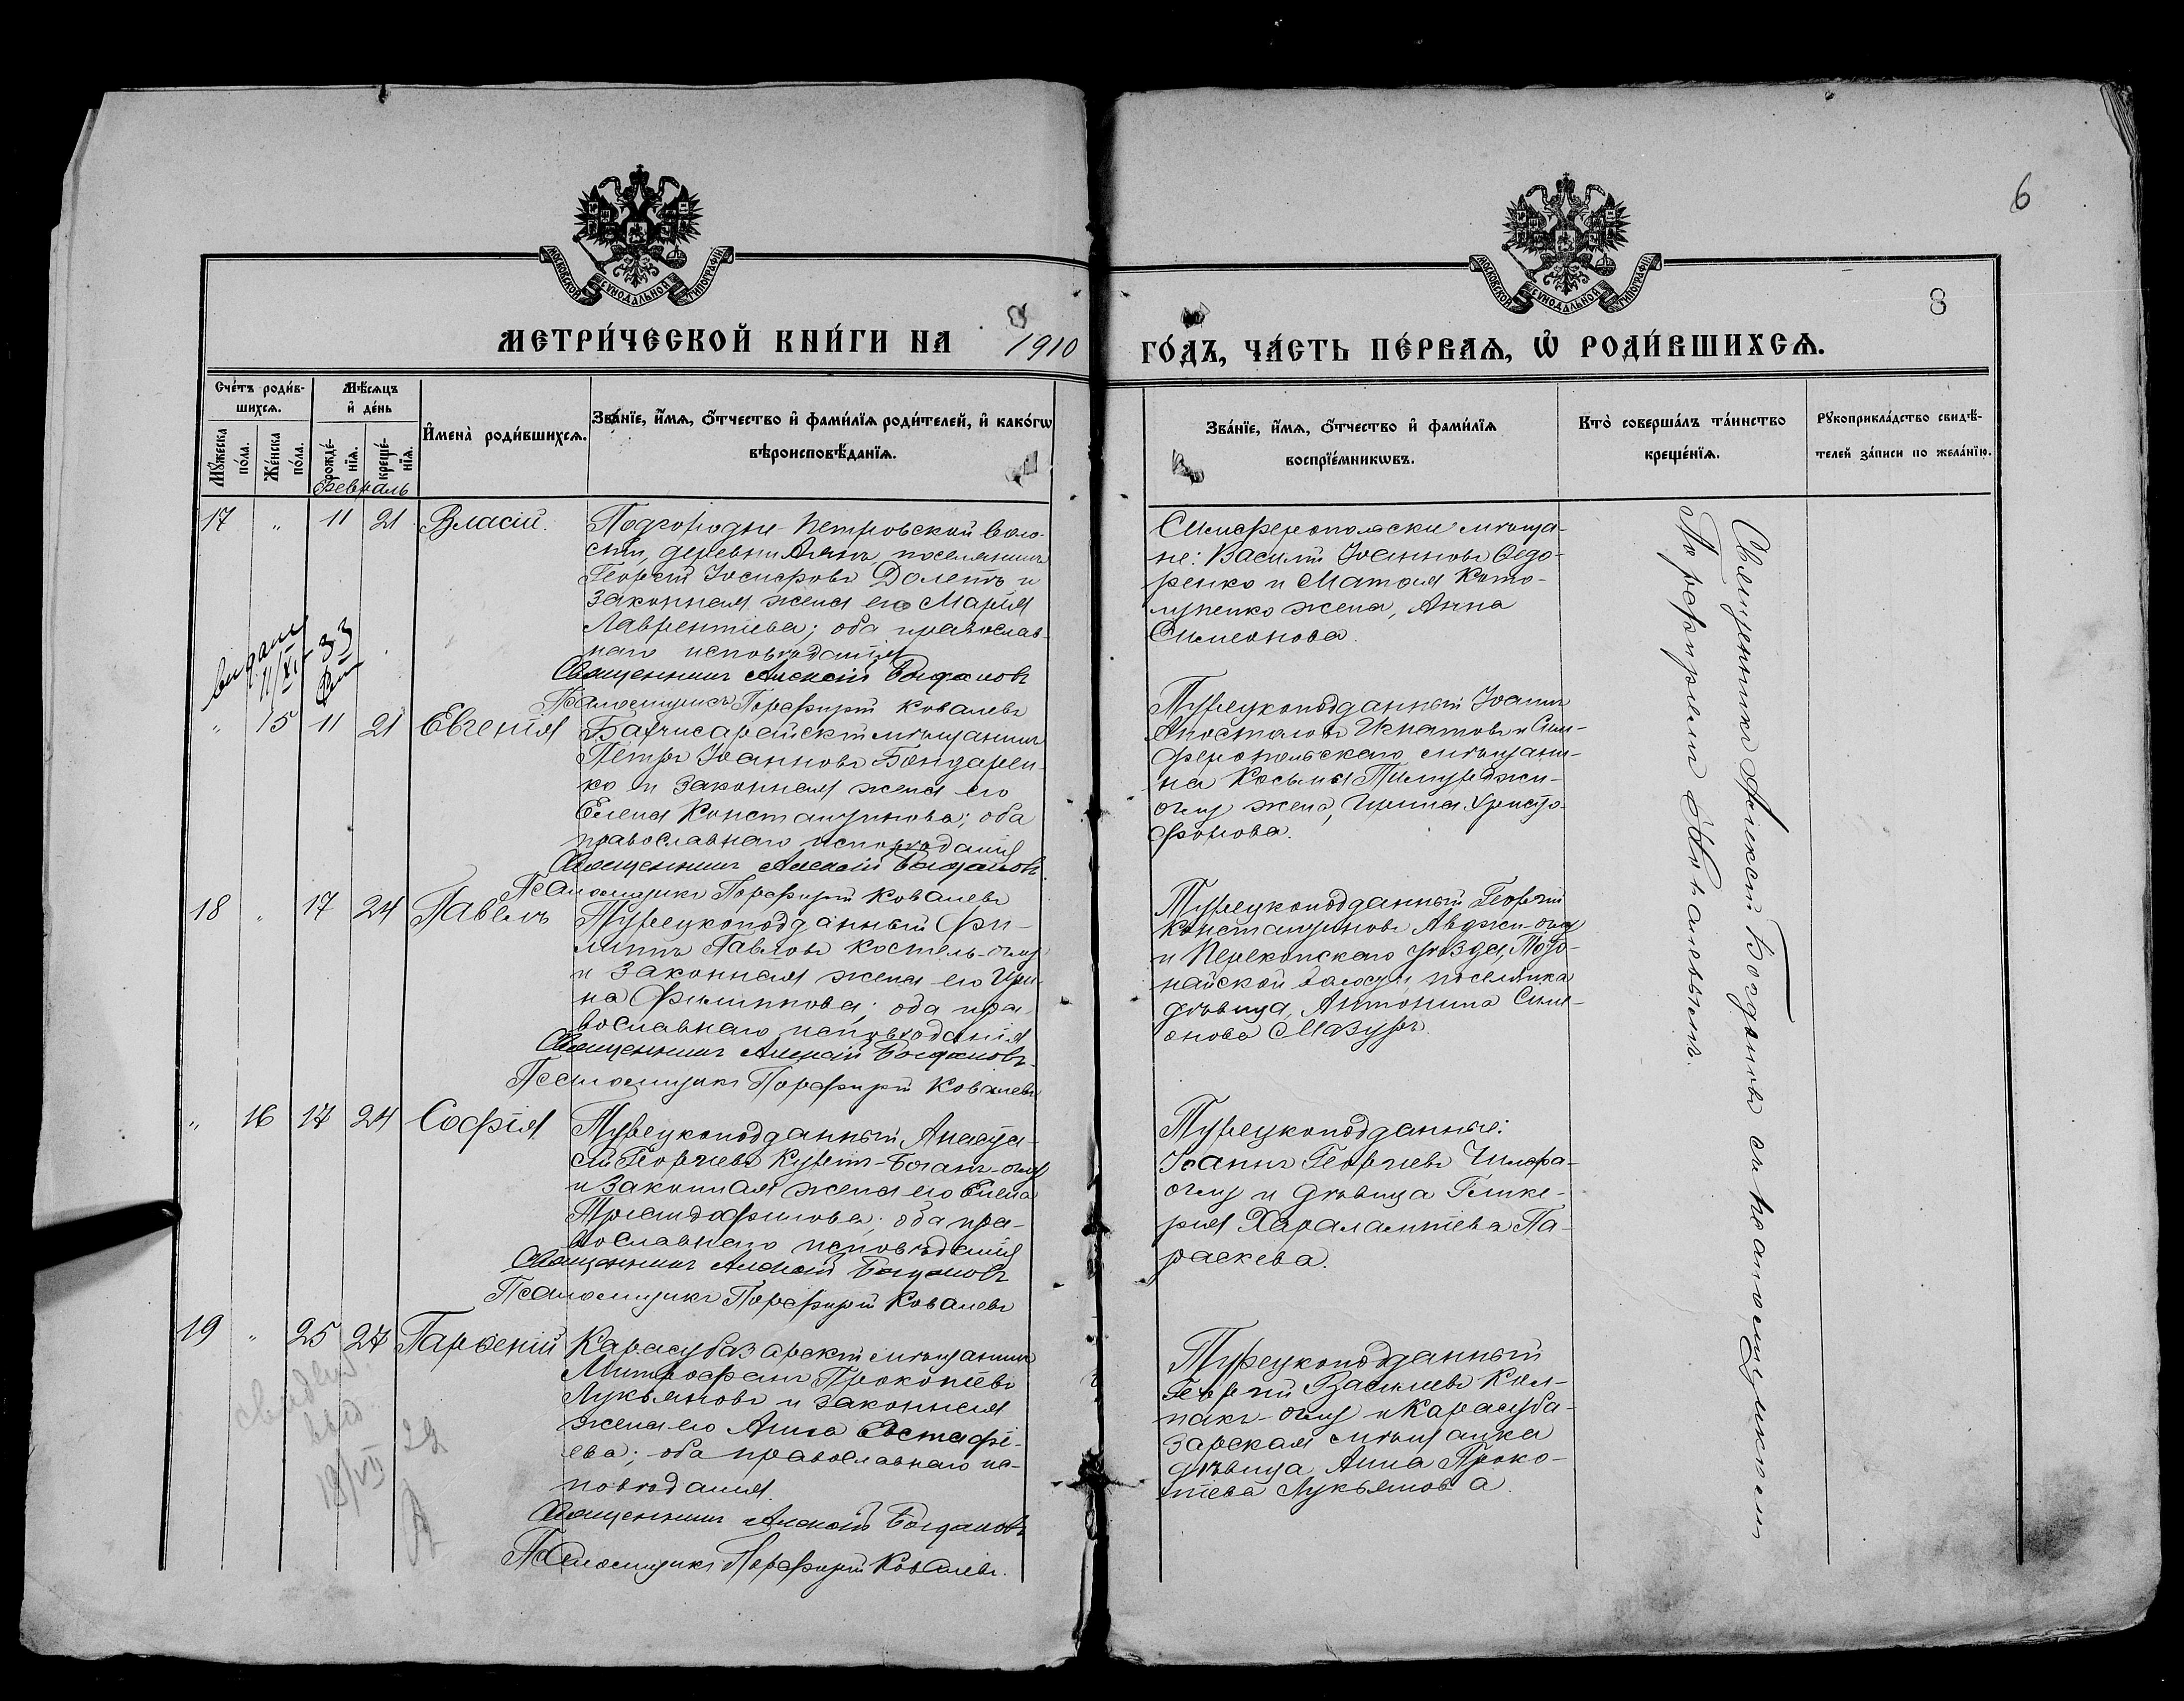 6
8
МОСКОВСКОЙ СѴНОДАЛЬНОЙ ТИПОГРАФІИ
МОСКОВСКОЙ СѴНОДАЛЬНОЙ ТИПОГРАФІИ
МЕТРИ́ЧЕСКОЙ КНИ́ГИ НА 1910
ГО́ДЪ, ЧА́СТЬ ПЕ́РВАѦ, Ѡ҆ РОДИ́ВШИХСѦ.
Сче́тъ роди́в-
шихсѧ.
Мꙋ́жеска по́ла.
Же́нска по́ла.
Мѣ́сѧцъ
и҆ де́нь
рожде́-
нїѧ.
креще́-
нїѧ.
Февраль
И҆мена̀ роди́вшихсѧ.
Зва́нїе, и҆́мѧ, ѻ҆́тчество и҆ фами́лїѧ роди́телей, и҆ како́гѡ
вѣроисповѣ́данїѧ.
Зва́нїе, и҆́мѧ, ѻ҆́тчество и҆ фами́лїѧ
воспрїе́мникѡвъ.
Кто̀ соверша́лъ та́инство
креще́нїѧ.
Рꙋкоприкла́дство свидѣ́-
телей за́писи по жела́нїю.
17 " 11 21 Власій.
Подгородне-Петровской воло-
сти, деревни поселянинъ
Георгій Іосифовъ и
законная жена его Марія
Лаврентіева; оба православ-
наго исповѣданія
Священникъ Алексій Богдановъ
Псаломщикъ Порфирій Ковалевъ
Симферопольскіе мѣща-
не: Василій Іоанновъ Ѳедо-
ренко и
жена, Анна
Симеонова.
выдано
11/XI 33
" 15 11 21 Евгенія
Бахчисарайскій мѣщанинъ
Петръ Іоанновъ Бондарен-
ко и законная жена его
Елена Константинова; оба
православнаго исповѣданія
Священникъ Алексій Богдановъ
Псаломщикъ Порфирій Ковалевъ
Турецкоподданный Іоаннъ
Апостоловъ Игнатовъ и Сим-
феропольскаго мѣщани-
на Косьмы
оглу жена, Ирина Христо-
форова.
18 " 17 24 Павелъ
Турецкоподданный Фи-
липпъ Павловъ Костель-оглу
и законная жена его Ири-
на Филиппова; оба пра-
вославнаго исповѣданія
Священникъ Алексій Богдановъ
Псаломщикъ Порфирій Ковалевъ
Турецкоподданный Георгій
Константиновъ Авджи-оглу
и Перекопскаго уѣзда,
волости, поселянка
дѣвица, Антонина Сим-
онова Мазуръ.
" 16 17 24 Софія
Турецкоподданный Анаста-
сій Георгіевъ
и законная жена его Елена
Триандафилова; оба пра-
вославнаго исповѣданія
Священникъ Алексій Богдановъ
Псаломщикъ Порфирій Ковалевъ
Турецкоподданные:
Іоаннъ Георгіевъ
оглу и дѣвица Глике-
рія Харалампіева Па-
раскева.
19 " 25 27 Парѳеній
Карасубазарскій мѣщанинъ
Митрофанъ Прокопіевъ
Лукьяновъ и законная
жена его Анна Евстафі-
ева; оба православнаго ис-
повѣданія.
Священникъ Алексій Богдановъ
Псаломщикъ Порфирій Ковалевъ.
Турецкоподданный
Георгій Василіевъ Кал-
пакъ-оглу и Карасуба-
зарская мѣщанка
дѣвица Анна Проко-
піева Лукьянова.
выд
19/VII 29
Священникъ Алексій Богдановъ съ псаломщикомъ
Порфиріемъ Ковалевымъ.